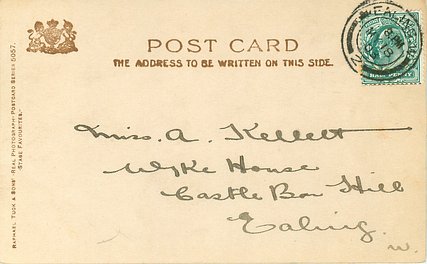 POST CARD
THE ADDRESS TO BE WRITTEN ON THIS SIDE.
RAPHAEL TUCK & SONS' "REAL PHOTOGRAPH" POSTCARD SERIES 5057.
"STAGE FAVOURITES."
EALING
HALF PENNY
Miss. A. Kellett
Wyke House
Castle Bar Hill
Ealing.
W.